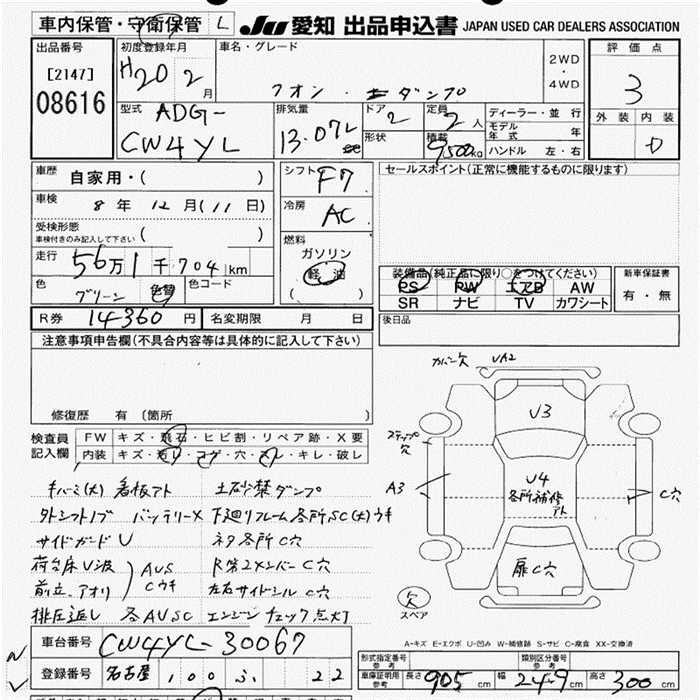 車内保管・守衛保管 L
JU 愛知 出品申込書 JAPAN USED CAR DEALERS ASSOCIATION
出品番号
[2147]
08616
初度登録年月
H20 年 2 月
車名・グレード
クオン . ダンプ
2WD
・
4WD
評価点
3
外装 内装
D
型式
ADG-
CW4YL
排気量
13.07L
ドア
2
形状
定員
2人
積載
9500kg
ディーラー・並行
モデル年式 年
ハンドル 左・右
車歴
自家用・( )
車検
8年 12月(11日)
受検形態
車検付きのみ記入して下さい ( )
走行
56万1千704km
色
グリーン
色替
色コード
シフト
F7
冷房
AC
燃料
ガソリン
軽油
( )
セールスポイント(正常に機能するものに限ります)
装備品(純正品に限り○をつけてください)
PS PW エアB AW
SR ナビ TV カワシート
新車保証書
有・無
R券 14360円 名変期限 月 日
後日品
注意事項申告欄(不具合内容等は具体的に記入して下さい)
修復歴 有(箇所 )
検査員
記入欄
FW キズ・飛石・ヒビ割・リペア跡・X要
内装 キズ・汚レ・コゲ・穴・スレ・キレ・破レ
キバミ(大) 看板アト 土砂禁ダンプ
外シフトノブ バッテリーX 下廻リフレーム各所SC(大)ウキ
サイドガードU ネタ各所C穴
荷台床U波 R第2メンバーC穴
前立、アオリ AUS Cウキ 左右サイドシルC穴
排圧返し 各AUSC エンジンチェック点灯
カバー穴 UA2
U3
ステップ穴
A3
U4
各所補修アト
C穴
扉C穴
穴
スペア
A-キズ E-エクボ U-凹み W-補修跡 S-サビ C-腐食 XX-交換済
車台番号 CW4YL-30067
登録番号 名古屋 100 22
形式指定番号
参考
類別区分番号
参考
車庫証明用
参考
長さ 905cm 幅 249cm 高さ 300cm